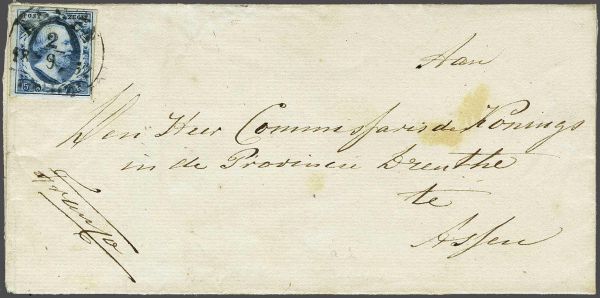 POST ZEGEL
2
9
5 C
Aan
Den Heer Commissaris des Konings
in de Provincie Drenthe
te
Assen
Franco